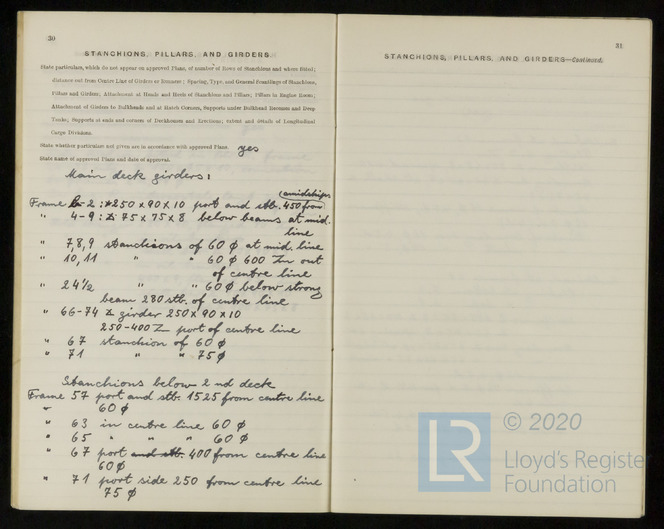 30
STANCHIONS, PILLARS, AND GIRDERS.
State particulars, which do not appear on approved Plans, of number of Rows of Stanchions and where fitted;
distance out from Centre Line of Girders or Runners; Spacing, Type, and General Scantlings of Stanchions,
Pillars and Girders; Attachment at Heads and Heels of Stanchions and Pillars; Pillars in Engine Room;
Attachment of Girders to Bulkheads and at Hatch Corners, Supports under Bulkhead Recesses and Deep
Tanks; Supports at ends and corners of Deckhouses and Erections; extent and details of Longitudinal
Cargo Divisions.
State whether particulars not given are in accordance with approved Plans. yes
State name of approved Plans and date of approval.
Main deck girders:
(amidships
Frame 2: 250 x 90 x 10 port and stb. 450 from
" 4-9: 75 x 75 x 8 below beams at mid.
line
" 7,8,9 stanchions of 60 ø at mid. line
" 10,11 " " 60 ø 600 out
of centre line
" 24½ " " 60 ø below strong
beam 280 stb. of centre line
" 66-74 girder 250 x 90 x 10
250-400 port of centre line
" 67 stanchion of 60 ø
" 71 " " 75 ø
Stanchions below 2 nd deck
Frame 57 port and stb. 1525 from centre line
" 60 ø
" 63 in centre line 60 ø
" 65 " " " 60 ø
" 67 port and stb. 400 from centre line
60 ø
" 71 port side 250 from centre line
75 ø
31
STANCHIONS, PILLARS, AND GIRDERS—Continued.
LR
© 2020
Lloyd's Register
Foundation